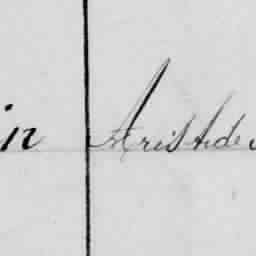 in Aristides